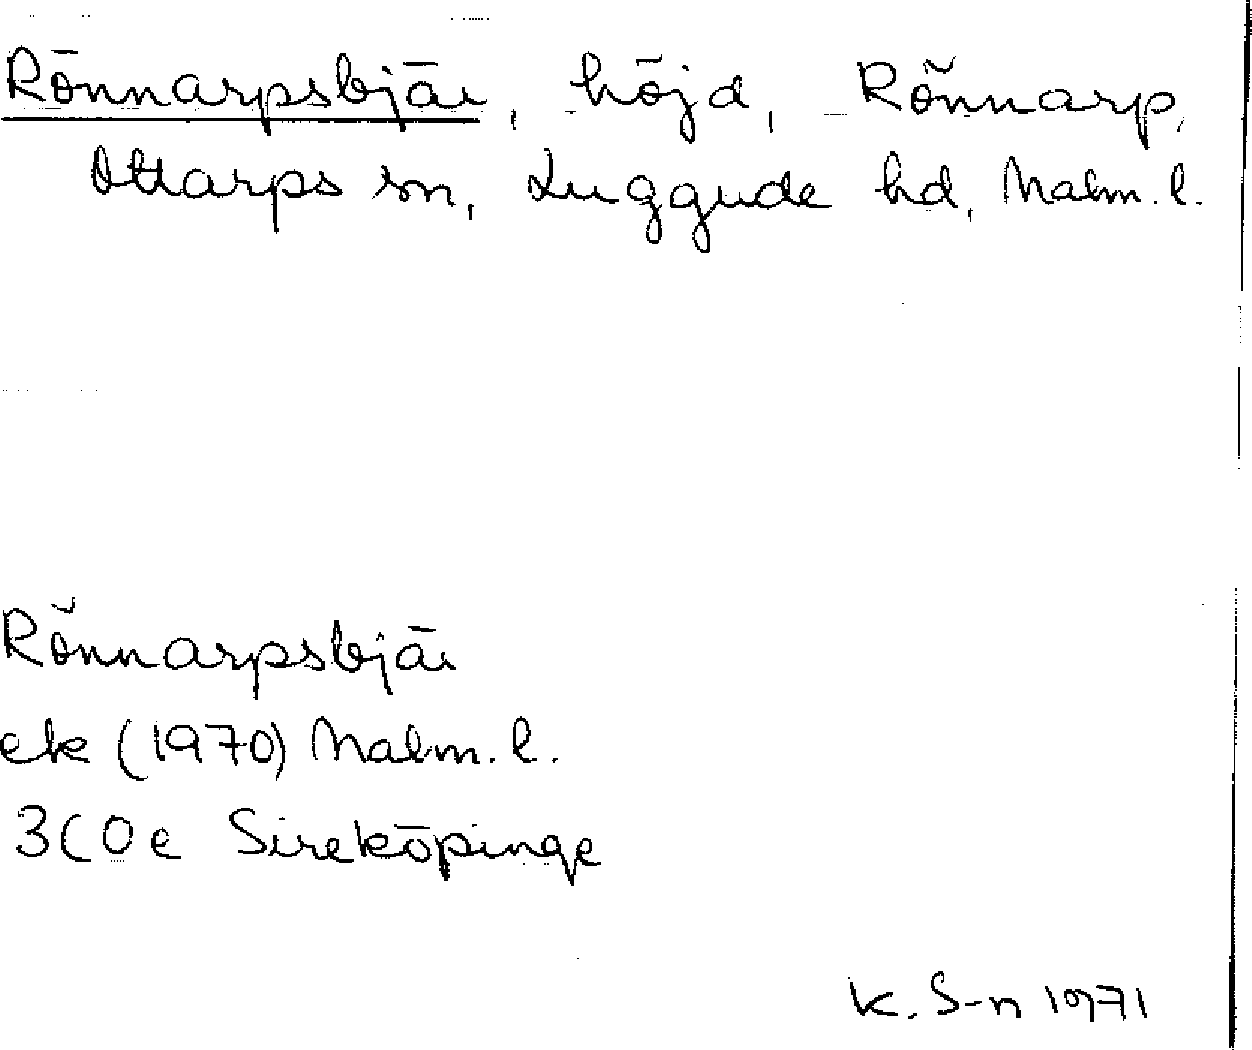 Rönnarpsbjär, höjd, Rönnarp,
Ottarps sn, Luggude hd, Malm. l.
Rönnarpsbjär
ek (1970) Malm. l.
3C0e Sireköpinge
K. S-n 1971